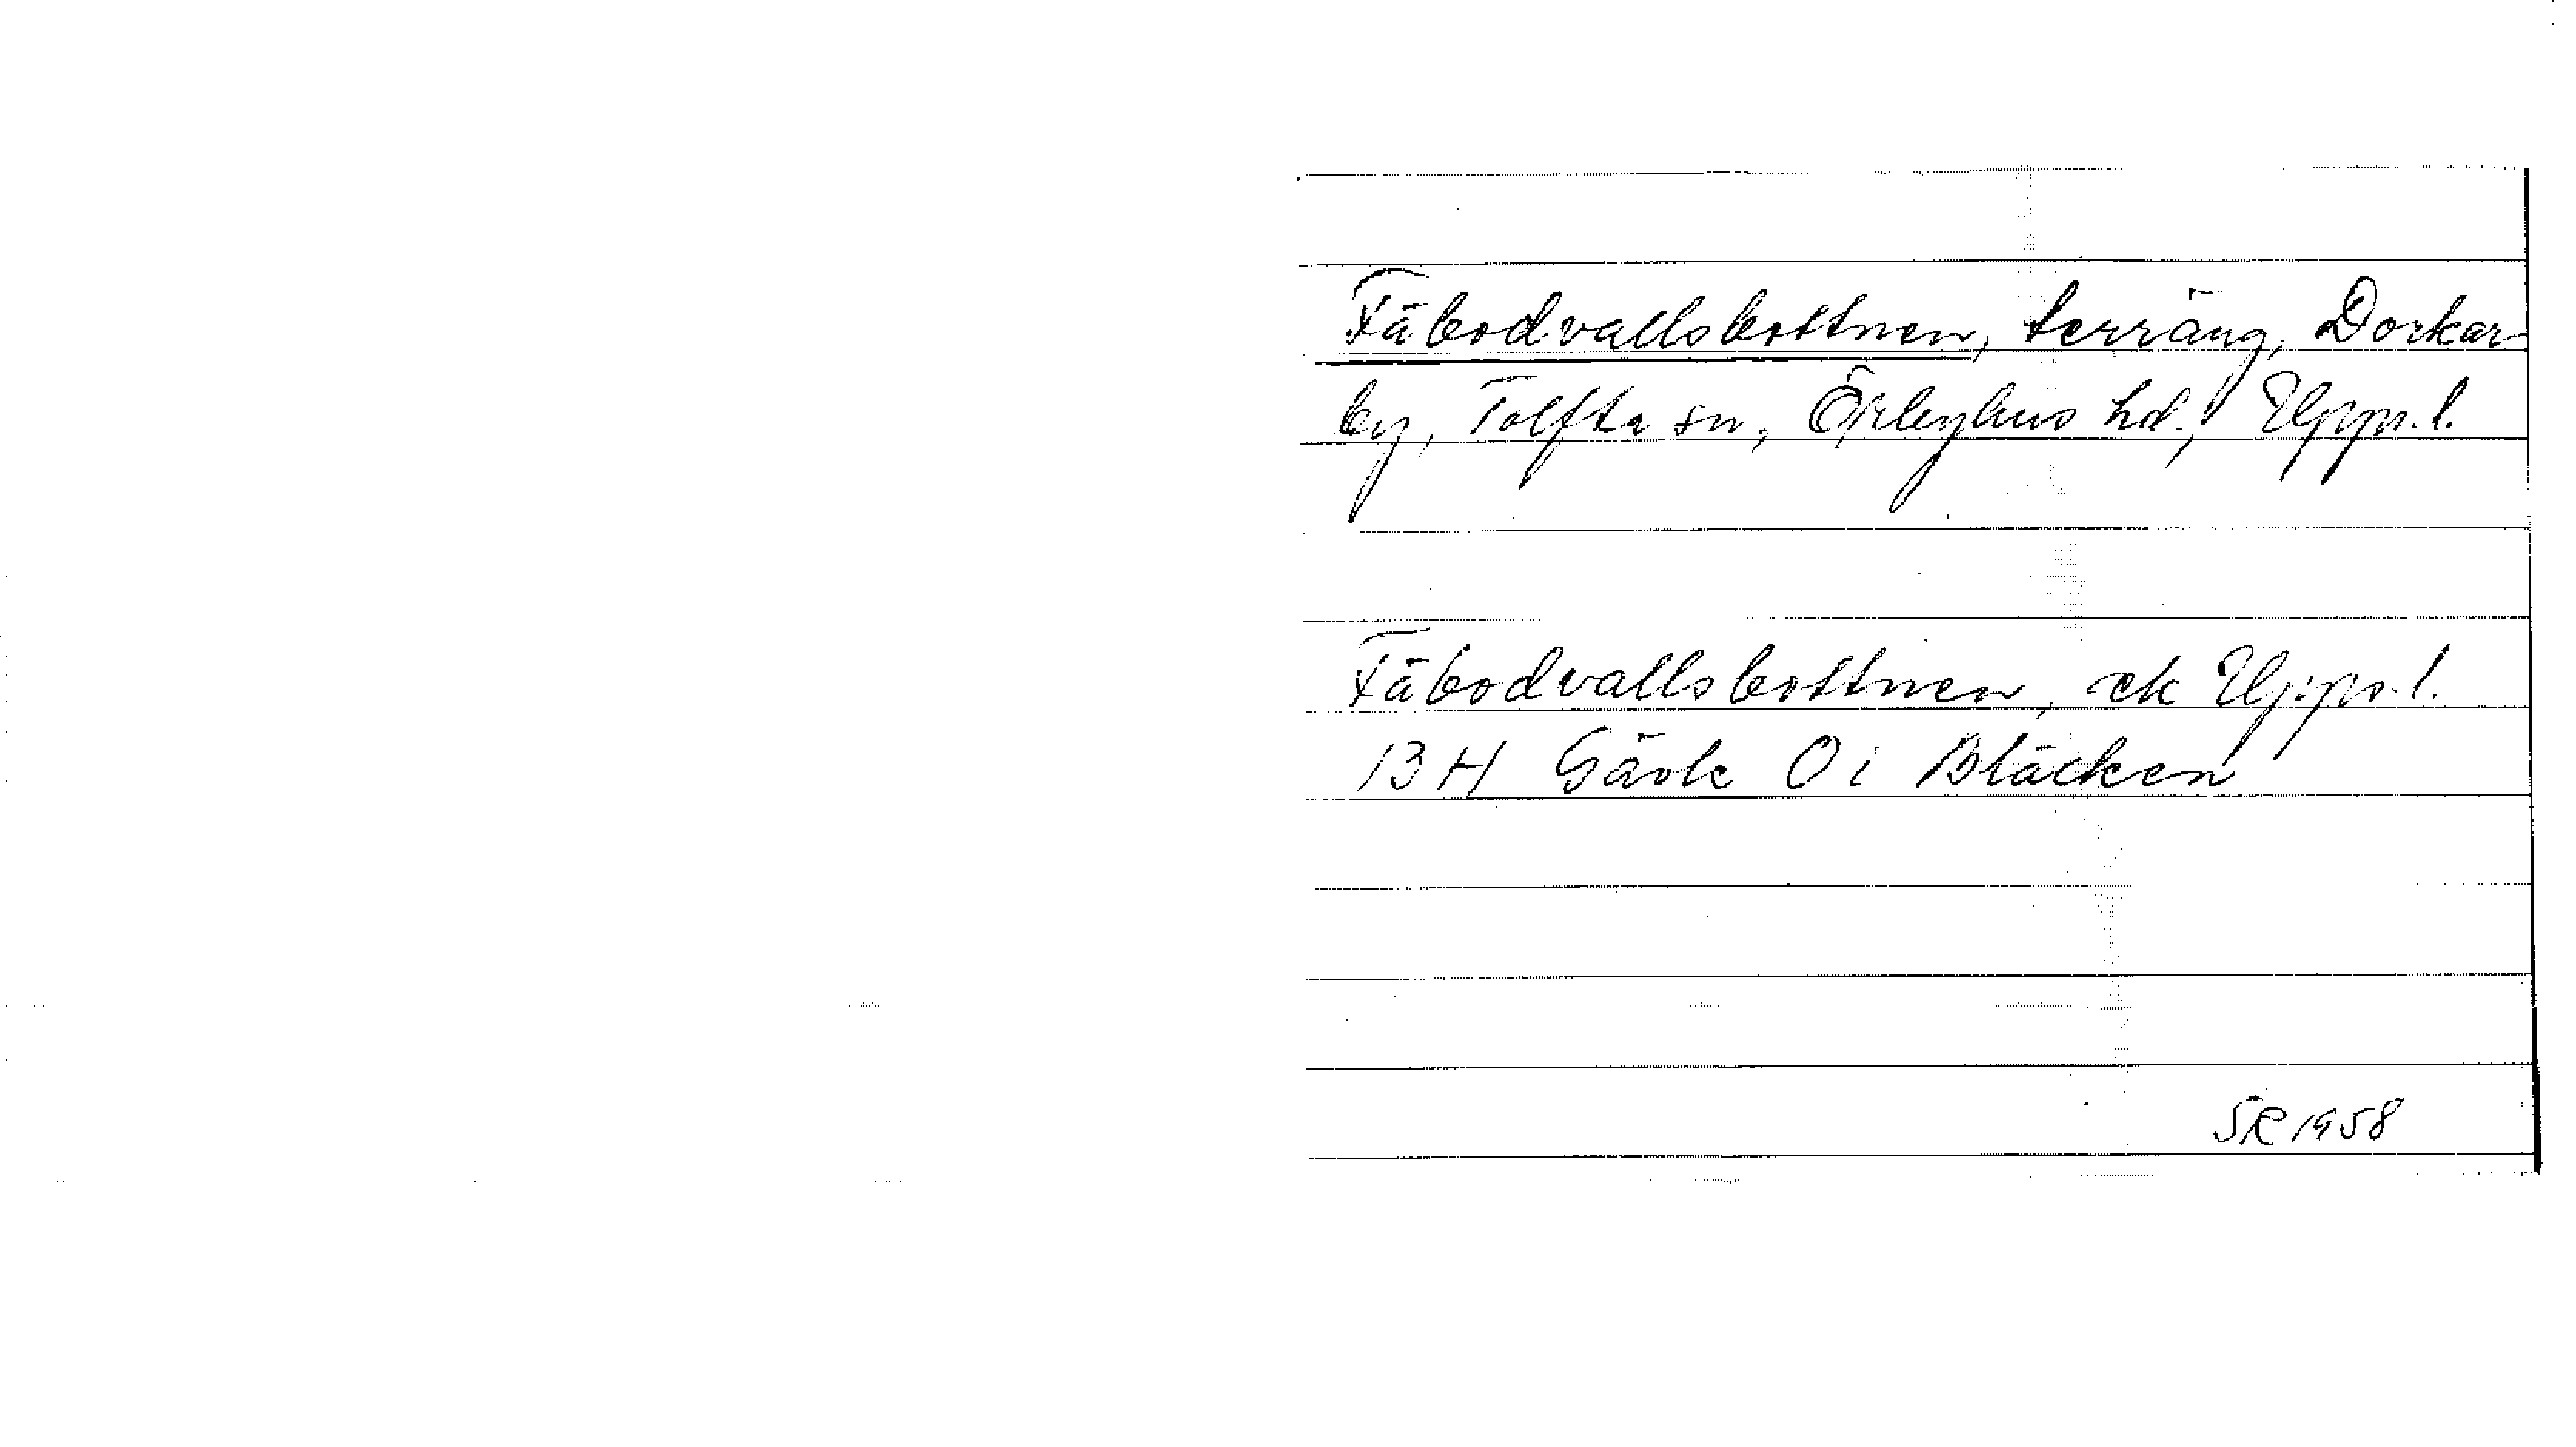 Fäbodvallsbottnen, terräng, Dorkar-
by, Tolfta sn, Örbyhus hd., Upps.l.
Fäbodvallsbottnen, ek Upps.l.
13 H Gävle Oi Bläcken
SR 1958